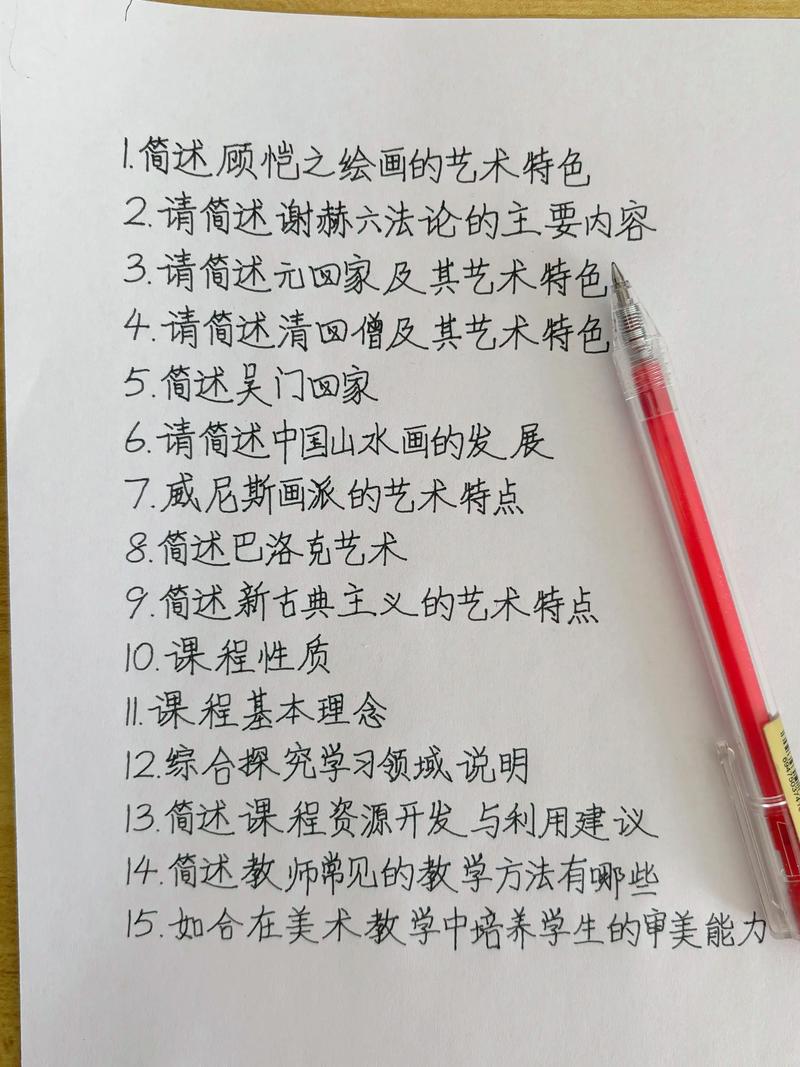 1.简述顾恺之绘画的艺术特色
2.请简述谢赫六法论的主要内容
3.请简述元四家及其艺术特色
4.请简述清四僧及其艺术特色
5.简述吴门四家
6.请简述中国山水画的发展
7.威尼斯画派的艺术特点
8.简述巴洛克艺术
9.简述新古典主义的艺术特点
10.课程性质
11.课程基本理念
12.综合探究学习领域说明
13.简述课程资源开发与利用建议
14.简述教师常见的教学方法有哪些
15.如合在美术教学中培养学生的审美能力